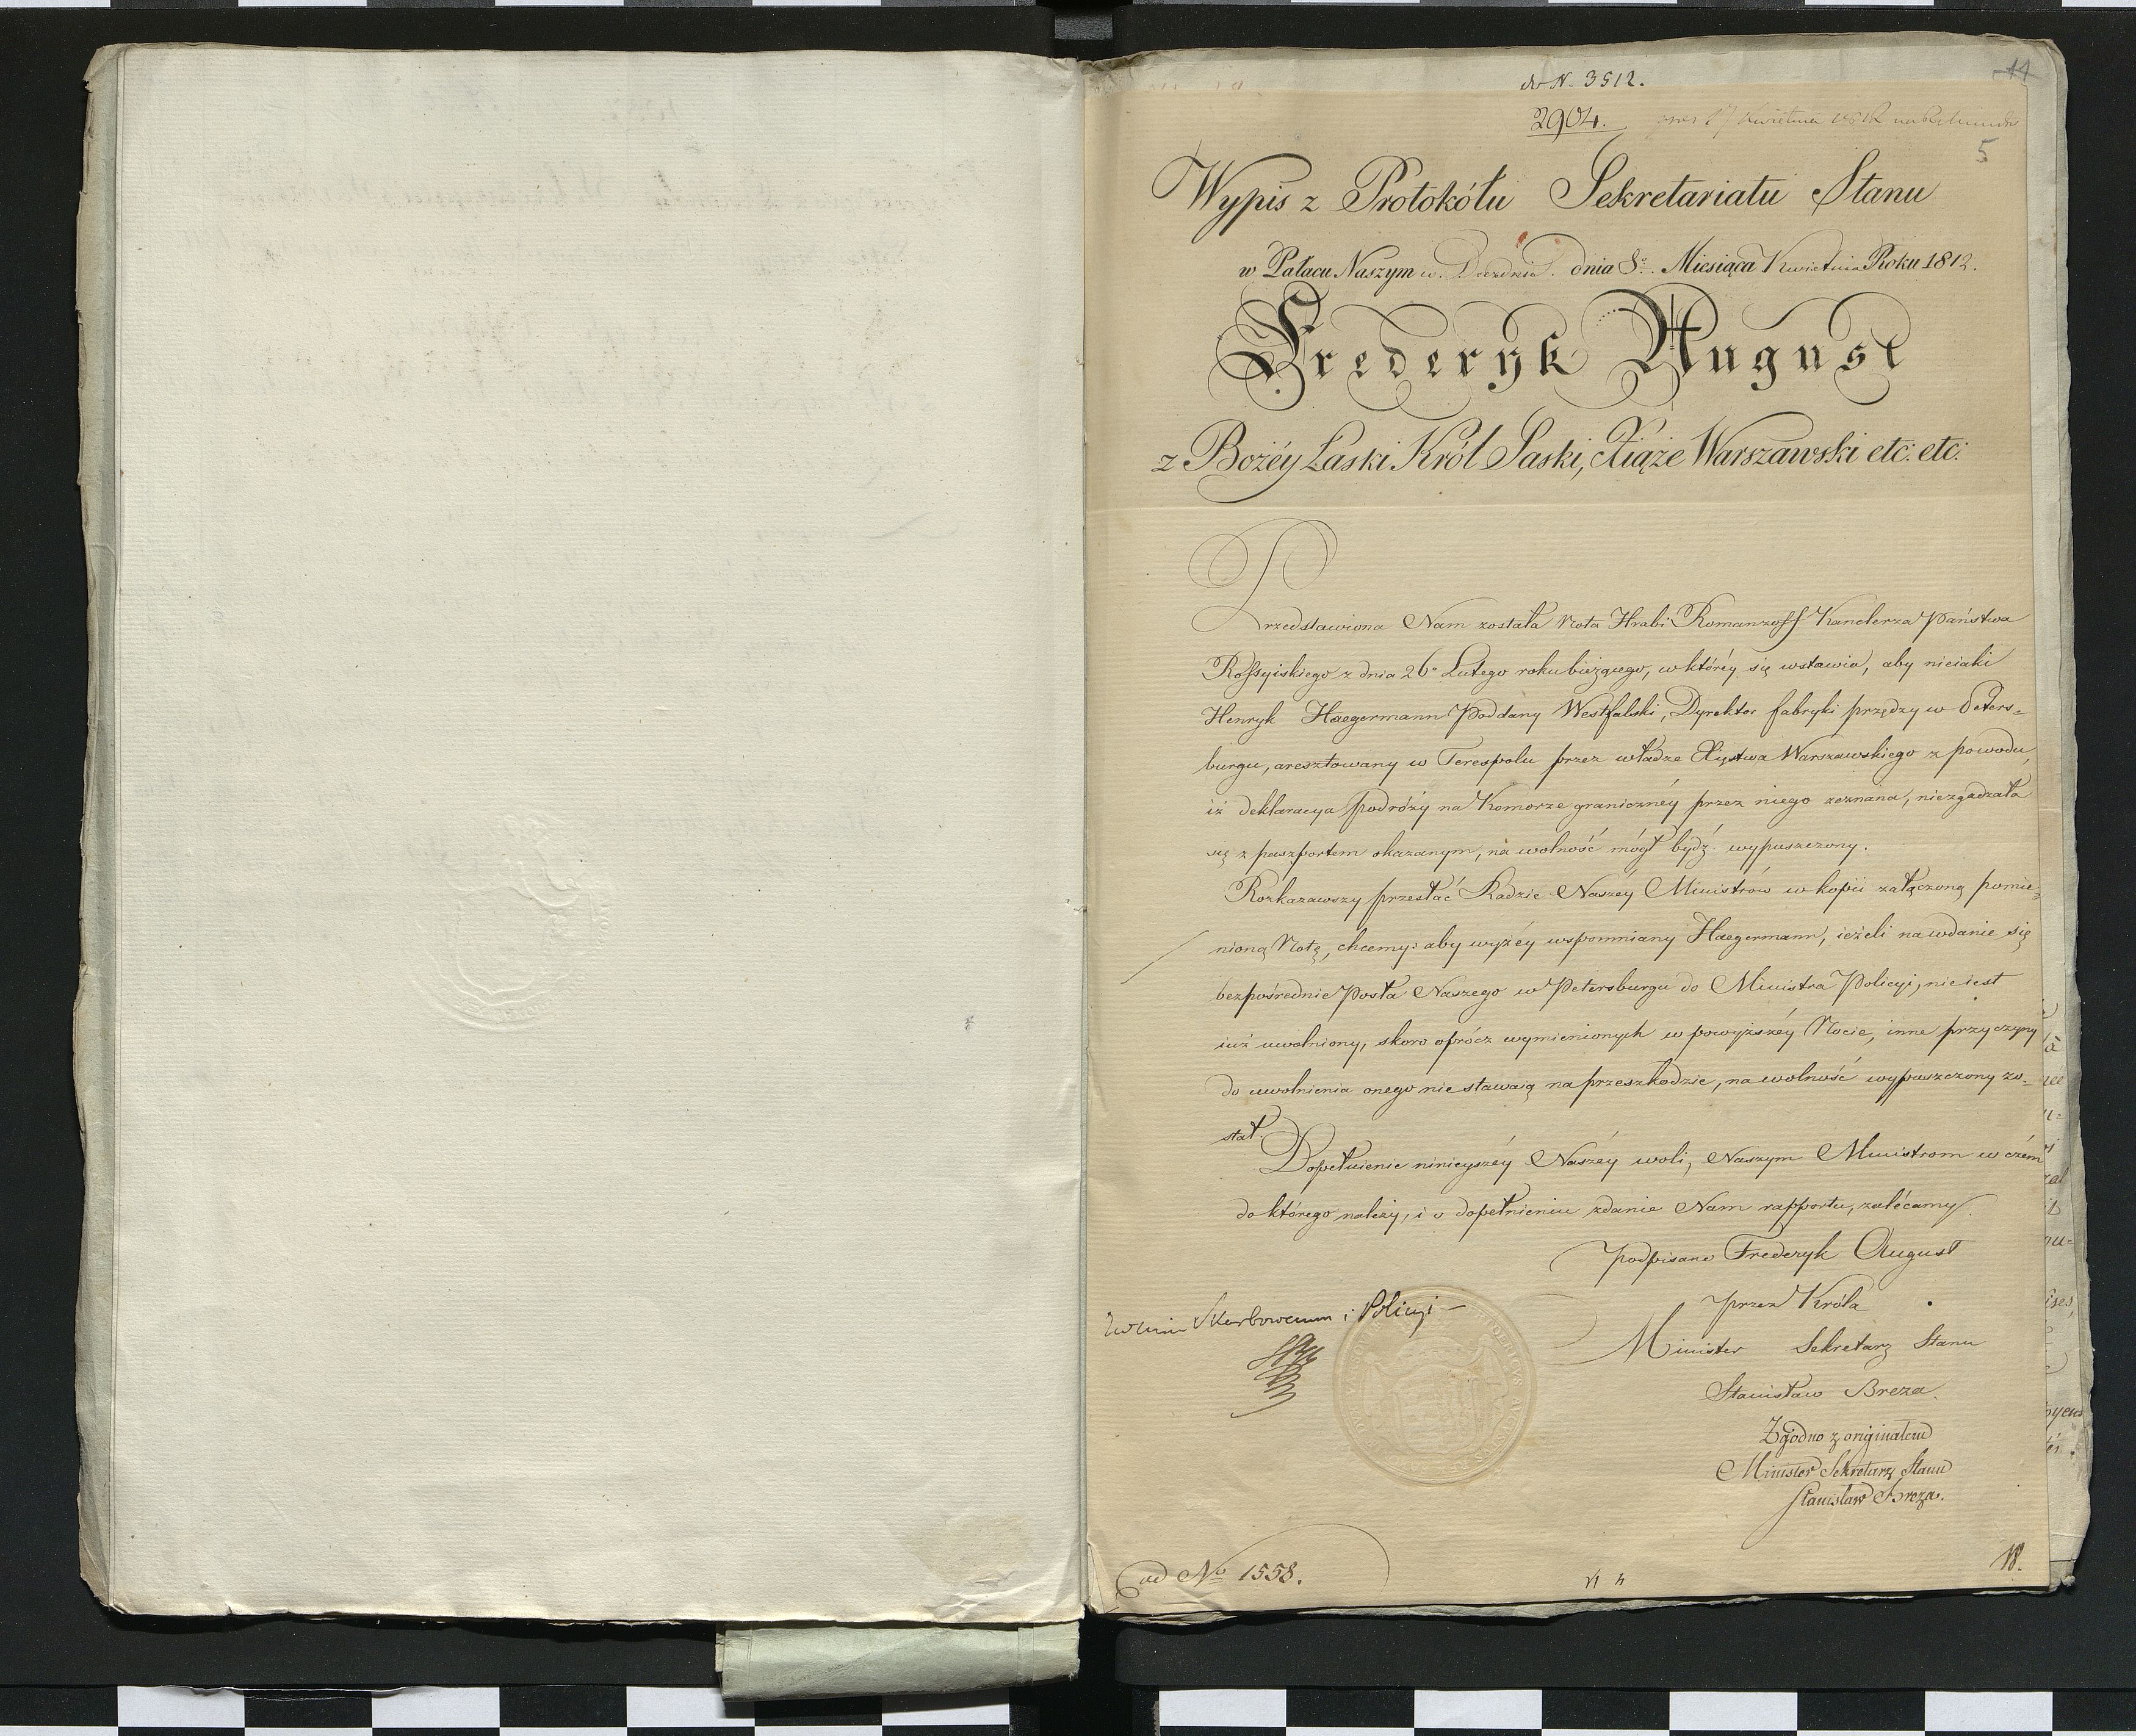 do N. 3512.
11
2904.
pres 17 Kwietnia 1812
5
Wypis z Protokółu Sekretariatu Stanu
w Pałacu Naszym w. Dreźnie. dnia 8º. Miesiąca Kwietnia Roku 1812.
Frederyk August
z Bożéy Łaski Król Saski, Xiąże Warszawski etc: etc:
Przedstawiona Nam została Nota Hrabi Romanzoff Kanclerza Państwa
Rossyiskiego z dnia 26º Lutego roku bieżącego, w któréy się wstawia, aby nieiaki
Henryk Haegermann Poddany Westfalski, Dyrektor fabryki przędzy w Peters=
burgu, aresztowany w Terespolu przez władze Xięstwa Warszawskiego z powodu,
iż deklaracya podróży na Komorze granicznéy przez niego zeznana, niezgadzała
się z paszportem okazanym, na wolność mógł bydź wypuszczony.
Rozkazawszy przesłać Radzie Naszéy Ministrów w kopii załączoną pomie=
nioną Notę, chcemy: aby wyżéy wspomniany Haegermann, ieżeli na wdanie się
bezpośrednie Posła Naszego w Petersburgu do Ministra Policyi, nie iest
iuż uwolniony, skoro oprócz wymienionych w powyższéy Nocie, inne przyczyny
do uwolnienia onego nie stawaią na przeszkodzie, na wolność wypuszczony zo=
stał.
Dopełnienie ninieyszéy Naszéy woli, Naszym Ministrom w czém
do którego należy, i o dopełnieniu zdanie Nam rapportu, zalécamy.
Podpisano Frederyk August
przez Króla
Skarbowemu i Policyi –
Minister Sekretarz Stanu
Stanisław Breza.
Zgodno z originałem
Minister Sekretarz Stanu
Stanisław Breza.
ad Nº 1558.